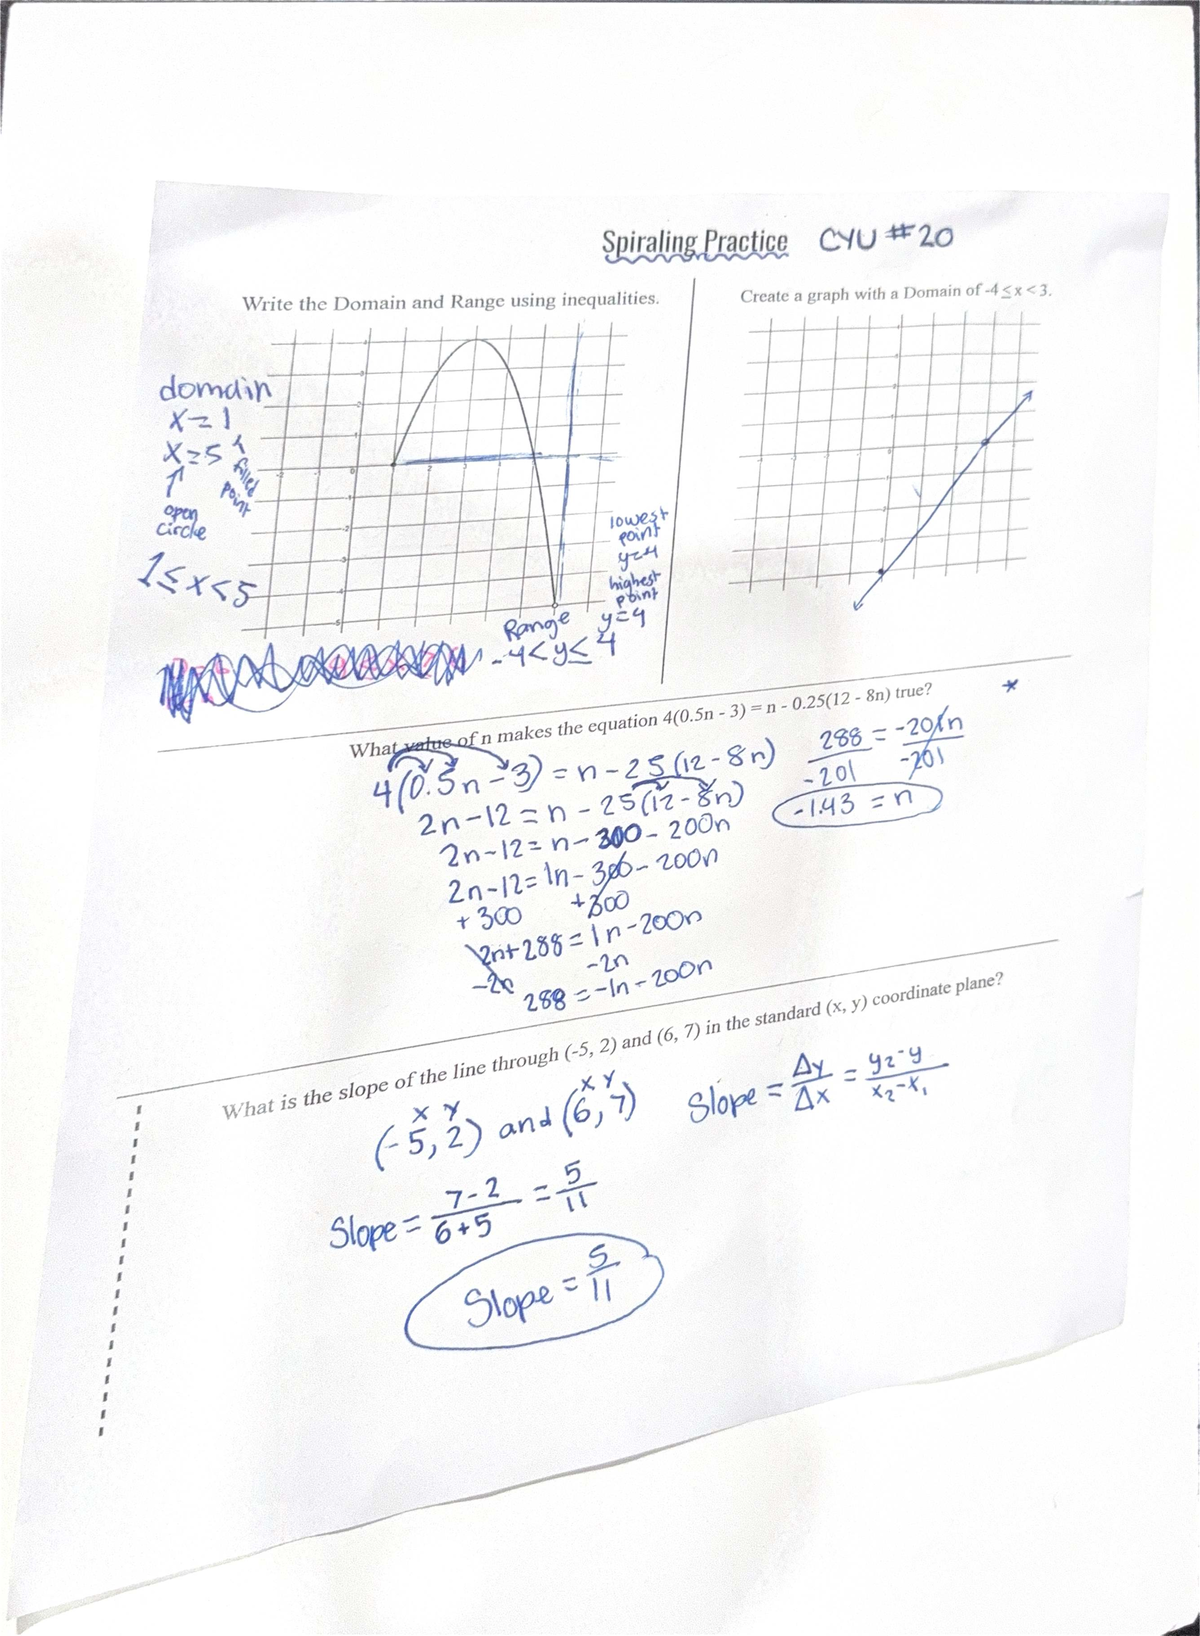 Spiraling Practice CYU #20
Write the Domain and Range using inequalities.
domain
x=1
x=5
filled
point
open
circle
1≤x<5
lowest
point
y=4
highest
point
y=4
Range
-4<y≤4
Create a graph with a Domain of -4≤x<3.
What value of n makes the equation 4(0.5n - 3) = n - 0.25(12 - 8n) true? *
4(0.5n-3) = n-25(12-8n)
2n-12=n-25(12-8n)
2n-12=n-300-200n
2n-12=1n-300-200n
+300 +300
2n+288=1n-200n
-2n -2n
288=-1n-200n
288 = -201n
-201 -201
-1.43 = n
What is the slope of the line through (-5, 2) and (6, 7) in the standard (x, y) coordinate plane?
x y x y
(-5,2) and (6,7)
Slope = Δy/Δx = y2-y/x2-x1
Slope = 7-2/6+5 = 5/11
Slope = 5/11